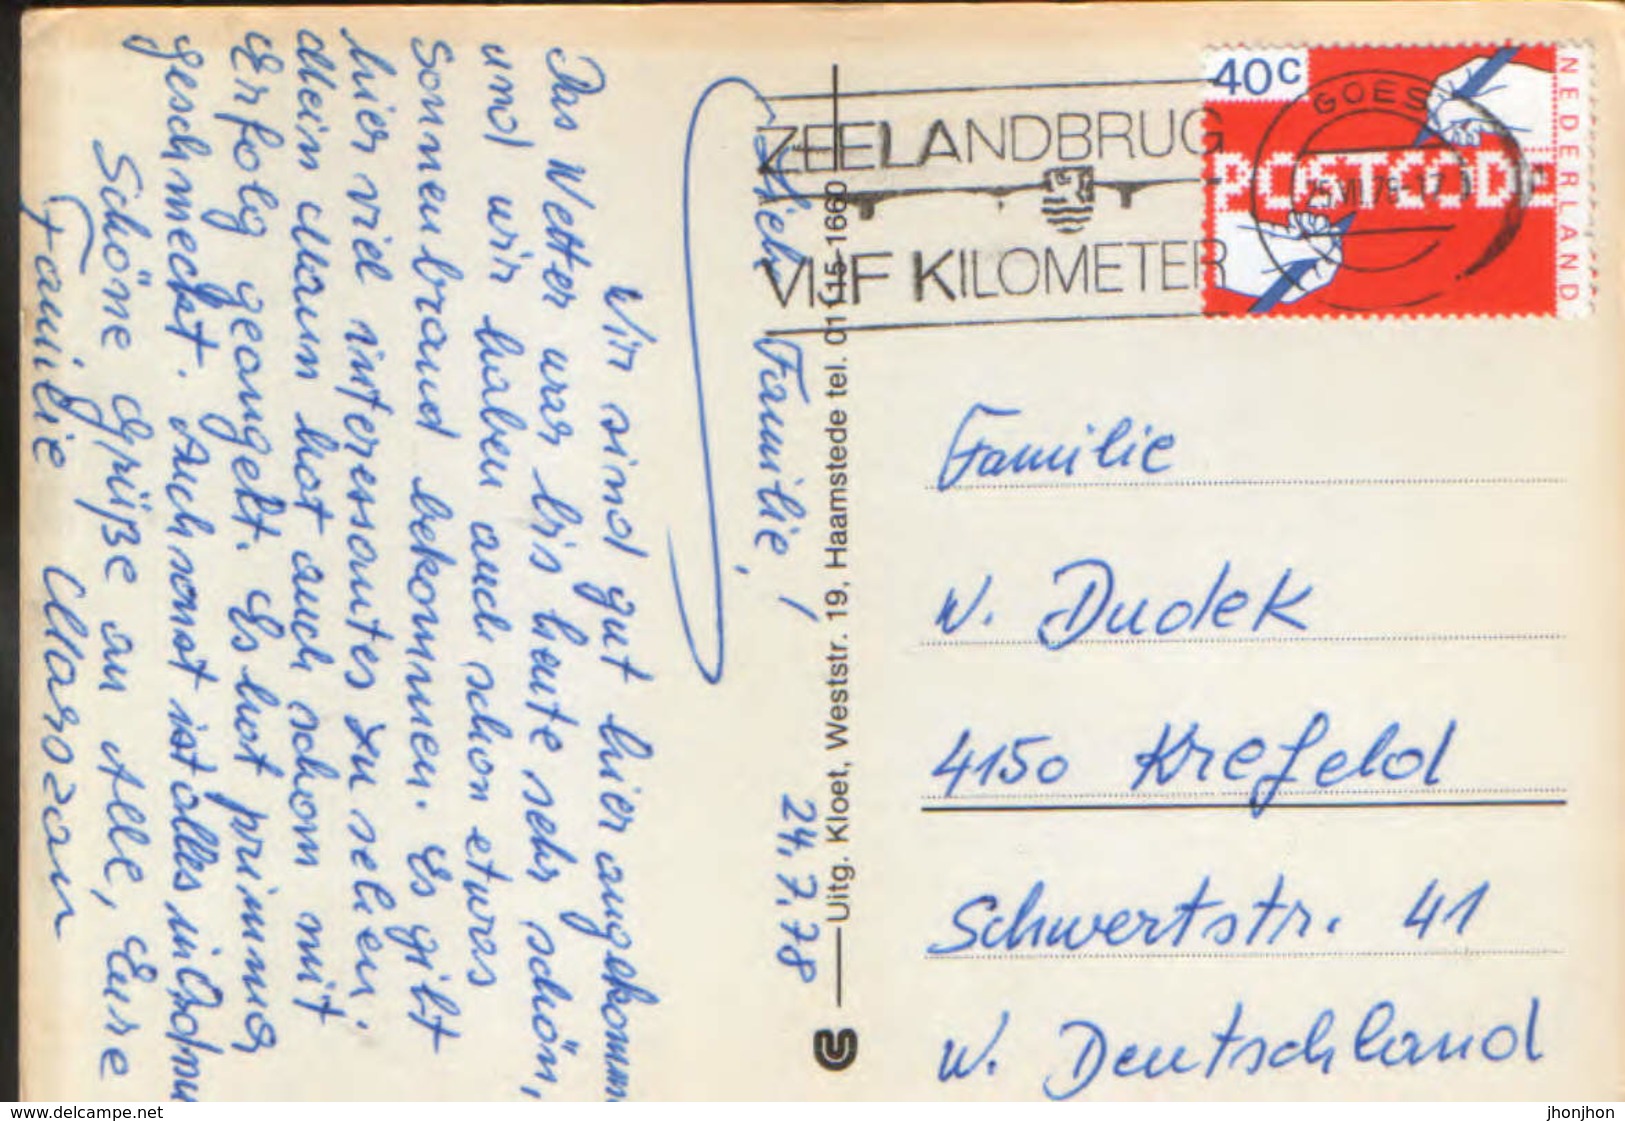 Liebe Familie,
24.7.78
Wir sind gut hier angekomm
Das Wetter war bis heute sehr schön,
und wir haben auch schon etwas
Sonnenbrand bekommen. Es gibt
hier viel interessantes zu sehen.
Mein Mann hat auch schon mit
Erfolg geangelt. Es hat prima
geschmeckt. Auch sonst ist alles in Ordnu
Schöne Grüße an Alle, Eure
Familie Marozan
Uitg. Kloet, Weststr. 19, Haamstede tel. 01115-1660
ZEELANDBRUG
VIJF KILOMETER
GOES
40c
POSTCODE
NEDERLAND
Familie
W. Dudek
4150 Krefeld
Schwertstr. 41
W. Deutschland
www.delcampe.net
jhonjhon